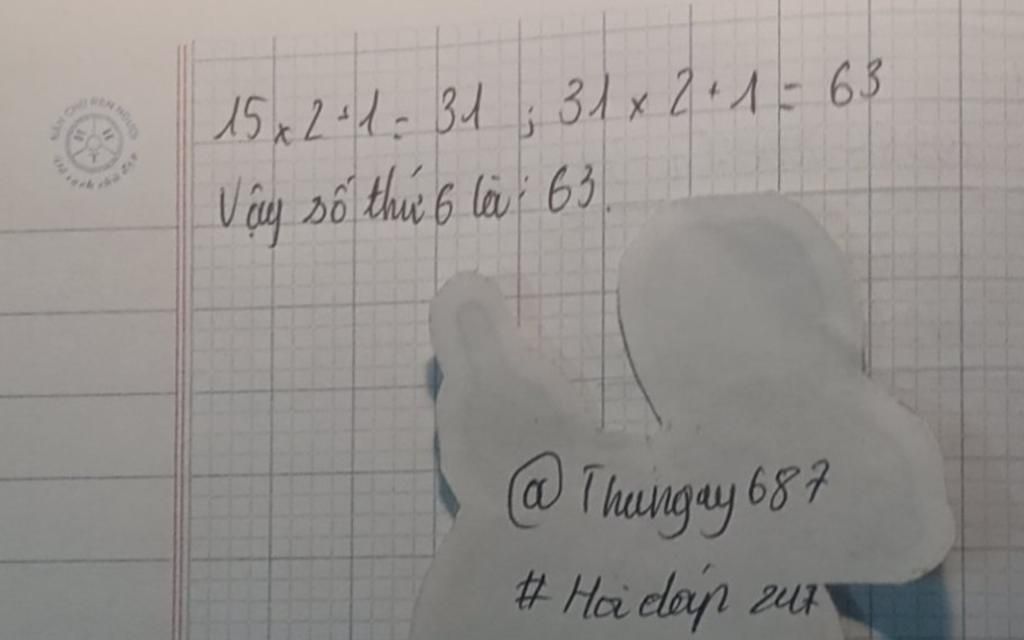 15 x 2 + 1 = 31 ; 31 x 2 + 1 = 63
Vậy số thứ 6 là: 63.
@Thungay687
# Hoidap 247